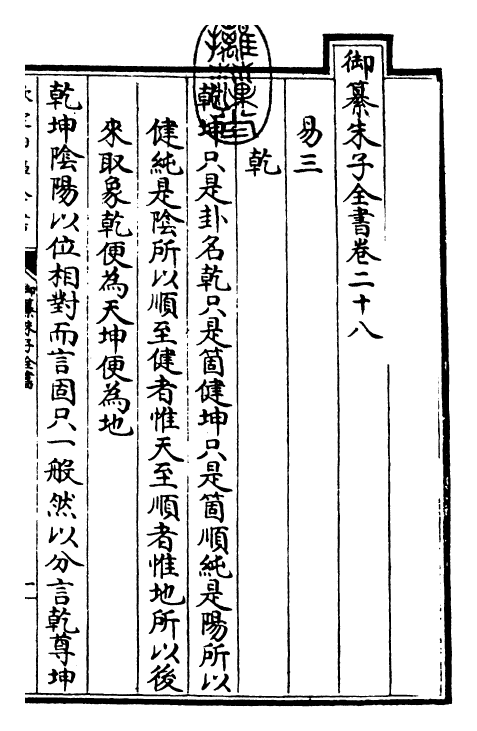 御纂朱子全書卷二十八
易三
乾
乾坤只是卦名乾只是箇健坤只是箇順純是陽所以
健純是陰所以順至健者惟天至順者惟地所以後
來取象乾便為天坤便為地
乾坤陰陽以位相對而言固只一般然以分言乾尊坤
御纂朱子全書